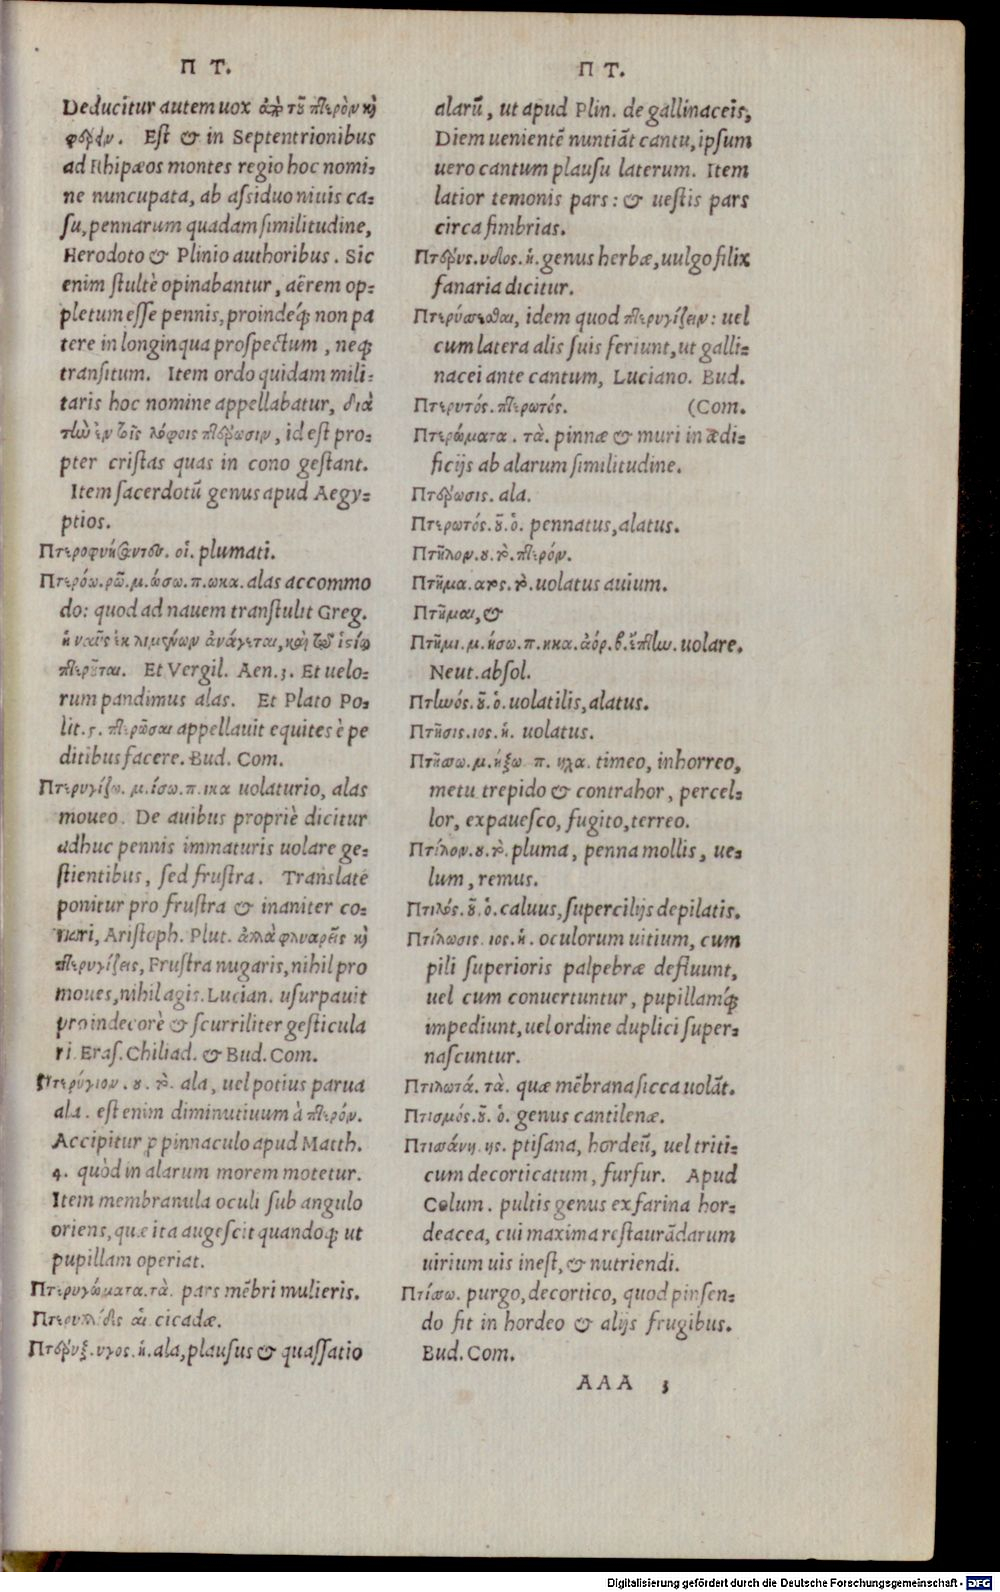 Π Τ.
Deducitur autem uox ἀπὸ τοῦ πτερὸν καὶ
φέρειν. Est & in Septentrionibus
ad Rhipæos montes regio hoc nomi=
ne nuncupata, ab assiduo niuis ca=
su, pennarum quadam similitudine,
Herodoto & Plinio authoribus. Sic
enim stultè opinabantur, aërem op=
pletum esse pennis, proindeq́; non pa
tere in longinqua prospectum, neq;
transitum. Item ordo quidam mili=
taris hoc nomine appellabatur, διὰ
τὴν ἐν τοῖς λόφοις πτέρωσιν, id est pro=
pter cristas quas in cono gestant.
Item sacerdotũ genus apud Aegy=
ptios.
οἱ. plumati.
Πτερόω. ρῶ. μ. ώσω. π. ωκα. alas accommo
do: quod ad nauem transtulit Greg.
ἡ ναῦς ἐκ λιμένων ἀνάγεται, καὶ τῷ ἱστίῳ
πτεροῦται. Et Vergil. Aen. 3. Et uelo=
rum pandimus alas. Et Plato Po=
lit. 5. πτερῶσαι appellauit equites è pe
ditibus facere. Bud. Com.
Πτερυγίζω. μ. ίσω. π. ικα uolaturio, alas
moueo. De auibus propriè dicitur
adhuc pennis immaturis uolare ge=
stientibus, sed frustra. Translate
ponitur pro frustra & inaniter co=
nari, Aristoph. Plut. ἀλλὰ φλυαρεῖς καὶ
πτερυγίζεις, Frustra nugaris, nihil pro
moues, nihil agis. Lucian. usurpauit
pro indecorè & scurriliter gesticula
ri. Eras. Chiliad. & Bud. Com.
Πτερύγιον. ου. τὸ. ala, uel potius parua
ala. est enim diminutiuum à πτερόν.
Accipitur p pinnaculo apud Matth.
4. quòd in alarum morem motetur.
Item membranula oculi sub angulo
oriens, quæ ita augescit quandoq; ut
pupillam operiat.
Πτερυγώματα. τὰ. pars mẽbri mulieris.
αἱ. cicadæ.
Πτέρυξ. υγος. ἡ. ala, plausus & quassatio
Π Τ.
alarũ, ut apud Plin. de gallinaceis,
Diem uenientẽ nuntiãt cantu, ipsum
uero cantum plausu laterum. Item
latior temonis pars: & uestis pars
circa fimbrias.
ἡ. genus herbæ, uulgo filix
fanaria dicitur.
Πτερύσσεσθαι, idem quod πτερυγίζειν: uel
cum latera alis suis feriunt, ut galli=
nacei ante cantum, Luciano. Bud.
Πτερυτός. πτερωτός. (Com.
Πτερώματα. τὰ. pinnæ & muri in ædi=
ficijs ab alarum similitudine.
Πτέρωσις. ala.
Πτερωτός. οῦ. ὁ. pennatus, alatus.
Πτῆλον. ου. τὸ. πτερόν.
Πτῆμα. ατος. τὸ. uolatus auium.
Πτῆμαι, &
Πτῆμι. μ. ήσω. π. ηκα. ἀόρ. β. ἔπτην. uolare.
Neut. absol.
Πτηνός. οῦ. ὁ. uolatilis, alatus.
Πτῆσις. ιος. ἡ. uolatus.
Πτήσσω. μ. ήξω π. ηχα. timeo, inhorreo,
metu trepido & contrahor, percel=
lor, expauesco, fugito, terreo.
Πτίλον. ου. τὸ. pluma, penna mollis, ue=
lum, remus.
Πτιλός. οῦ. ὁ. caluus, supercilijs depilatis.
Πτίλωσις. ιος. ἡ. oculorum uitium, cum
pili superioris palpebræ defluunt,
uel cum conuertuntur, pupillamq́;
impediunt, uel ordine duplici super=
nascuntur.
Πτιλωτά. τὰ. quæ mẽbrana sicca uolãt.
Πτισμός. οῦ. ὁ. genus cantilenæ.
Πτισάνη. ης. ptisana, hordeũ, uel triti=
cum decorticatum, furfur. Apud
Colum. pultis genus ex farina hor=
deacea, cui maxima restaurãdarum
uirium uis inest, & nutriendi.
Πτίσσω. purgo, decortico, quod pinsen=
do fit in hordeo & alijs frugibus.
Bud. Com.
AAA 3
Digitalisierung gefördert durch die Deutsche Forschungsgemeinschaft - DFG